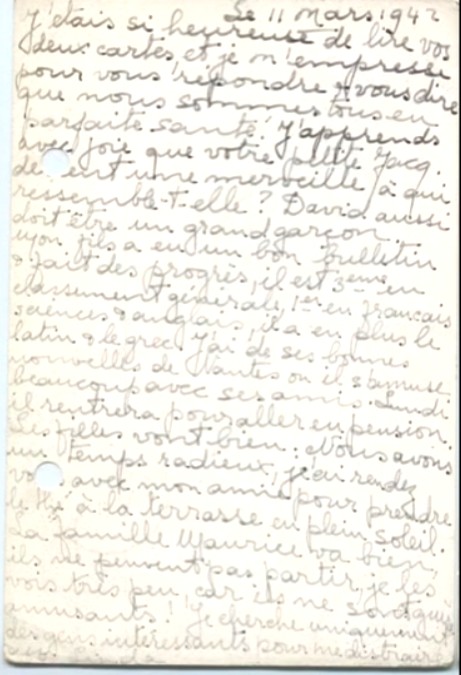 Le 11 Mars 1942
J'étais si heureuse de lire vos
deux cartes et je m'empresse
pour vous répondre & vous dire
que nous sommes tous en
parfaite santé. J'apprends
avec joie que votre petite Jacq.
devient une merveille, à qui
ressemble-t-elle ? David aussi
doit être un grand garçon.
Mon fils a eu un bon bulletin
& fait des progrès, il est 3ème en
classement général, 1er en français
sciences & anglais, il a en plus le
latin & le grec. J'ai de ses bonnes
nouvelles de Nantes où il s'amuse
beaucoup avec ses amis. Lundi
il rentrera pour aller en pension.
Les filles vont bien. Nous avons
un temps radieux, j'ai rendez
vous avec mon amie pour prendre
le thé à la terrasse en plein soleil.
La famille Maurice va bien,
ils ne peuvent pas partir, je les
vois très peu, car ils ne sont guère
amusants ! Je cherche uniquement
des gens intéressants pour me distraire